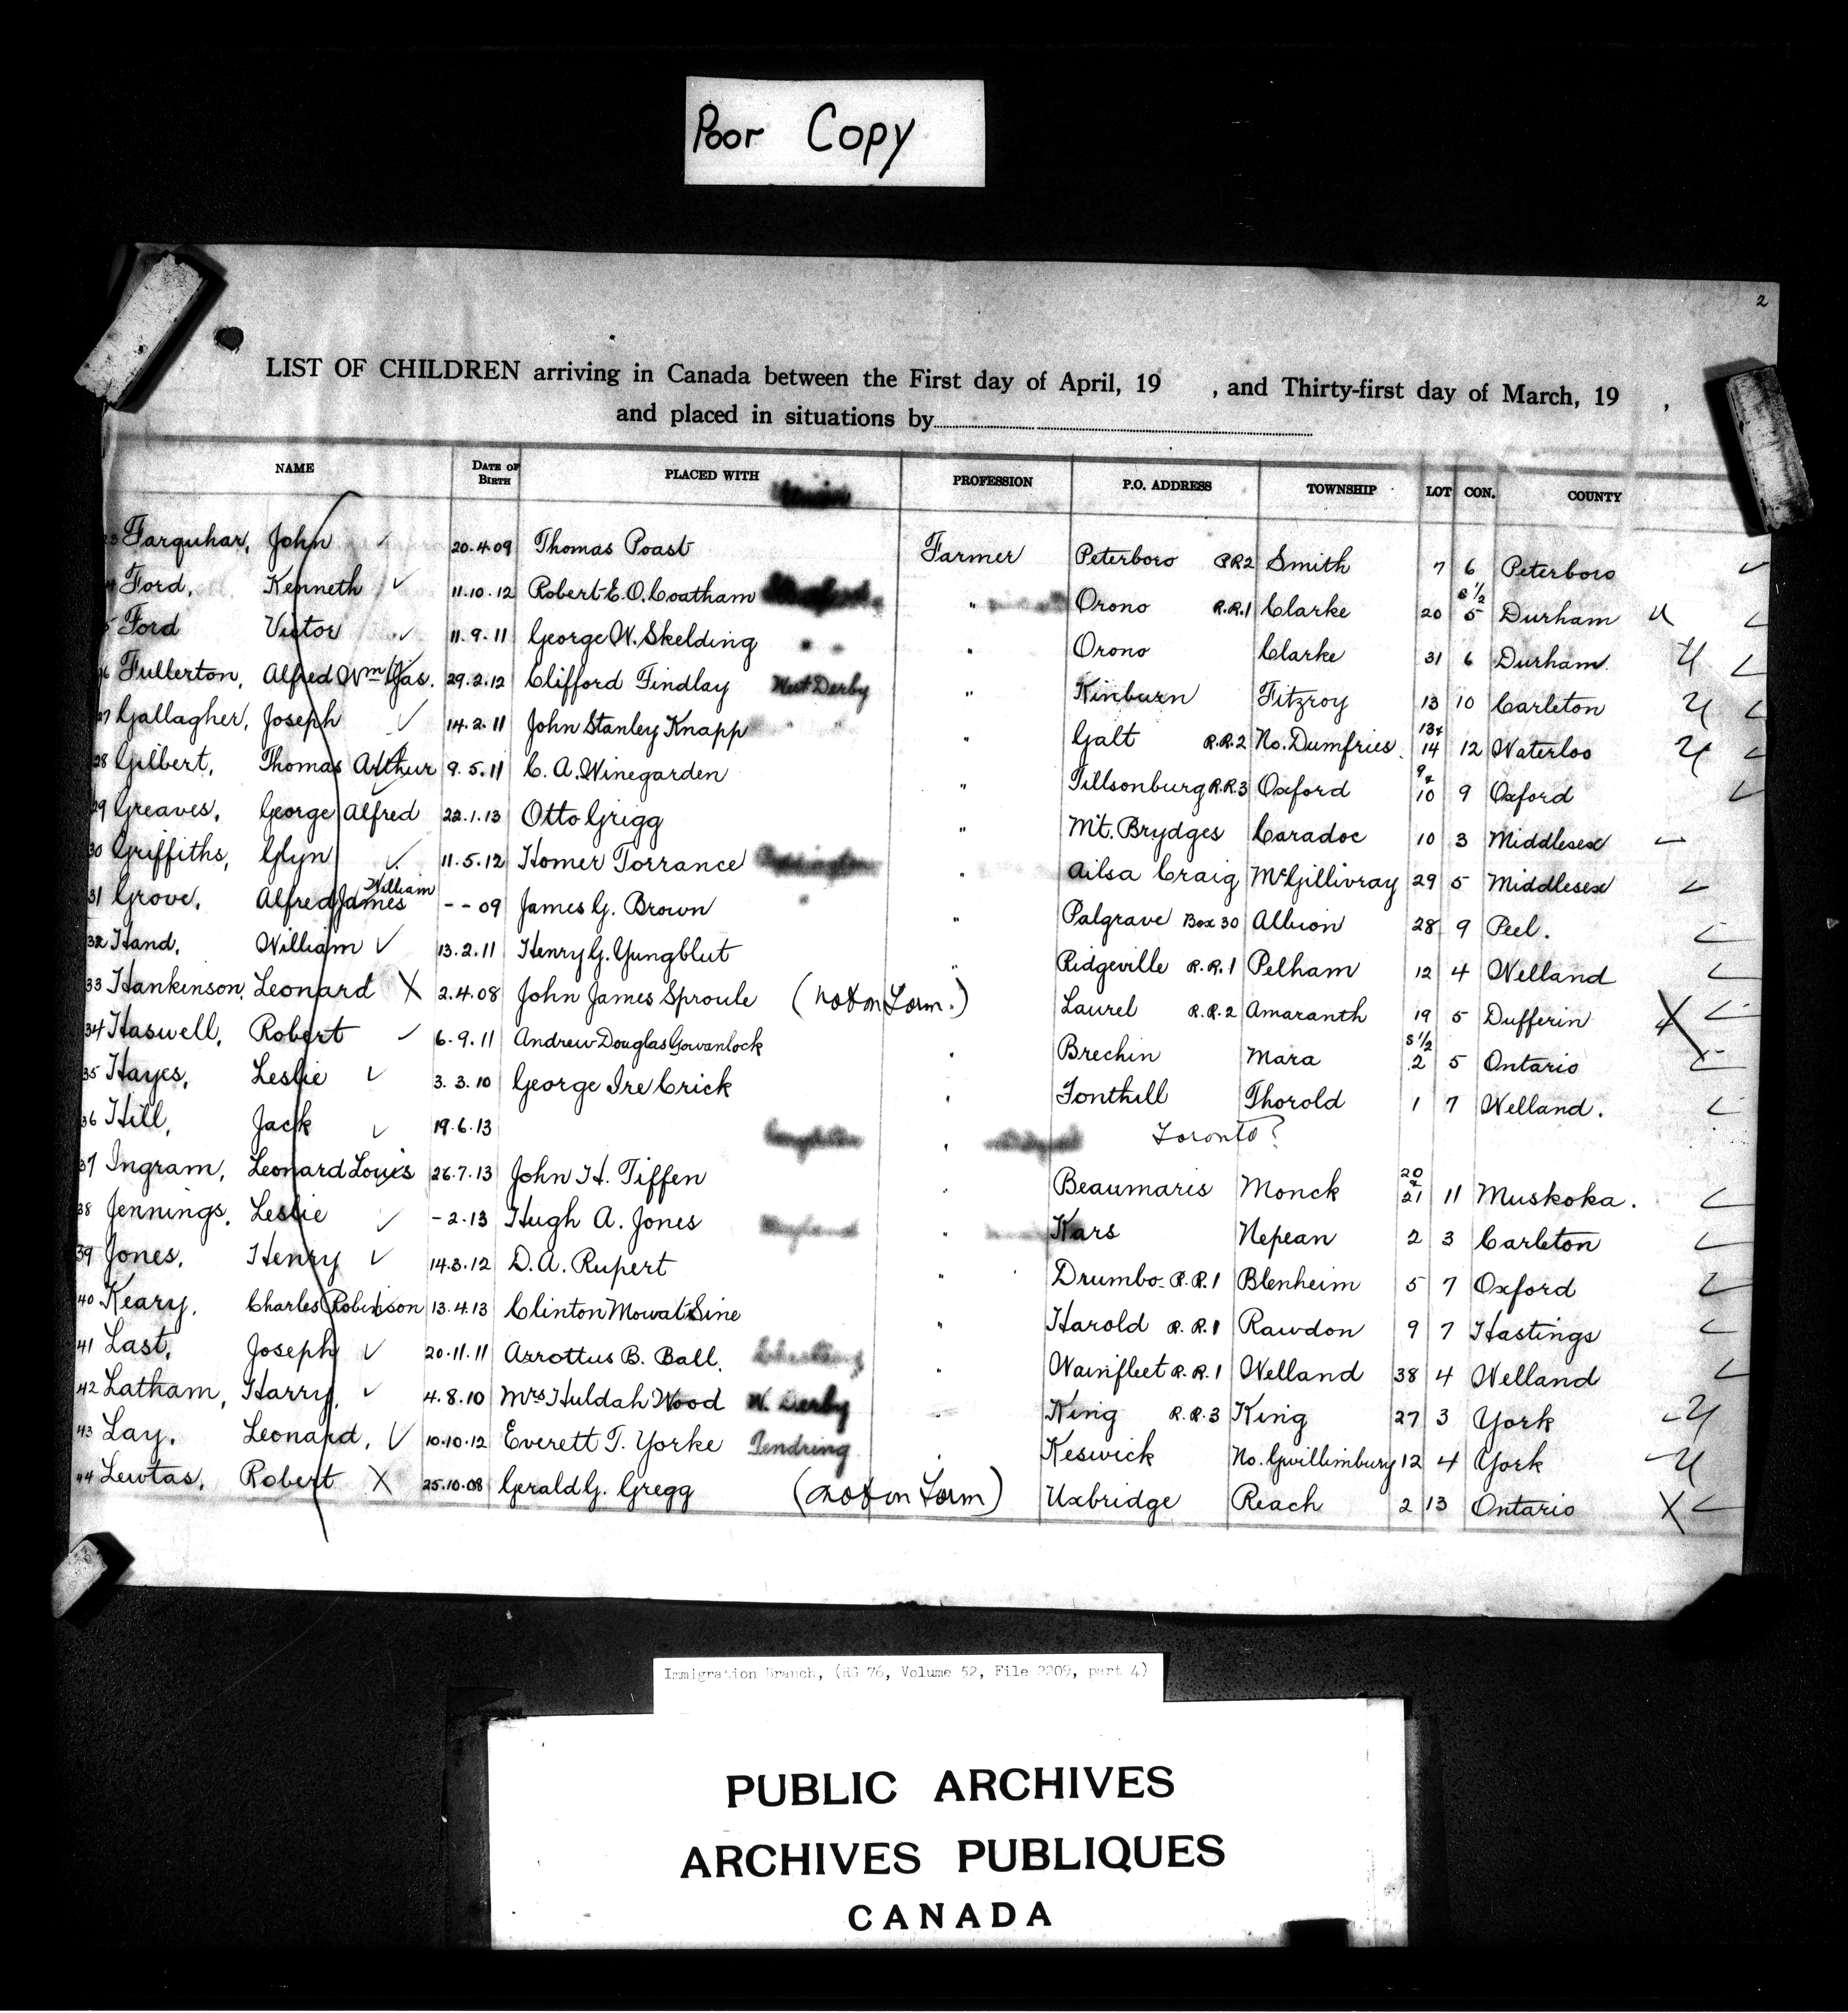 Poor Copy
2
LIST OF CHILDREN arriving in Canada between the First day of April, 19 , and Thirty-first day of March, 19 ,
and placed in situations by
NAME DATE OF BIRTH PLACED WITH PROFESSION P.O. ADDRESS TOWNSHIP LOT CON. COUNTY
Farquhar, John 20.4.09 Thomas Poast Farmer Peterboro R.R.2 Smith 7 6 Peterboro
Ford, Kenneth 11.10.12 Robert E.O. Coatham " Orono R.R.1 Clarke 20 S 1/2 5 Durham
Ford Victor 11.9.11 George W. Skelding " Orono Clarke 31 6 Durham.
Fullerton, Alfred Wm Jas. 29.2.12 Clifford Findlay West Derby " Kinburn Fitzroy 13 10 Carleton
27 Gallagher, Joseph 14.2.11 John Stanley Knapp " " Galt R.R.2 No. Dumfries. 13+ 14 12 Waterloo
28 Gilbert, Thomas Arthur 9.5.11 C. A. Winegarden " Tillsonburg R.R.3 Oxford 9+ 10 9 Oxford
29 Greaves, George Alfred 22.1.13 Otto Grigg " Mt. Brydges Caradoc 10 3 Middlesex
30 Griffiths, Glyn 11.5.12 Homer Torrance " Ailsa Craig McGillivray 29 5 Middlesex
31 Grove, Alfred James William - - 09 James G. Brown " " Palgrave Box 30 Albion 28 9 Peel.
32 Hand, William 13.2.11 Henry G. Yungblut " Ridgeville R.R.1 Pelham 12 4 Welland
33 Hankinson, Leonard X 2.4.08 John James Sproule (not on Form.) Laurel R.R.2 Amaranth 19 5 Dufferin X
34 Haswell, Robert 6.9.11 Andrew Douglas Gowanlock " Brechin Mara S 1/2 2 5 Ontario
35 Hayes, Leslie 3.3.10 George Ire Crick " Fonthill Thorold 1 7 Welland.
36 Hill, Jack 19.6.13 " Toronto?
37 Ingram, Leonard Louis 26.7.13 John H. Tiffen " Beaumaris Monck 20 + 21 11 Muskoka.
38 Jennings, Leslie - 2.13 Hugh A. Jones " Kars Nepean 2 3 Carleton
39 Jones, Henry 14.3.12 D. A. Rupert " Drumbo R.R.1 Blenheim 5 7 Oxford
40 Keary, Charles Robinson 13.4.13 Clinton Mowat Sine " Harold R.R.1 Rawdon 9 7 Hastings
41 Last, Joseph 20.11.11 Arrottus B. Ball. " Wainfleet R.R.1 Welland 38 4 Welland
42 Latham, Harry, 4.8.10 Mrs Huldah Wood W. Derby " King R.R.3 King 27 3 York
43 Lay, Leonard, 10.10.12 Everett T. Yorke Tendring " Keswick No. Gwillimbury 12 4 York
44 Lewtas, Robert X 25.10.08 Gerald G. Gregg (not on Form) Uxbridge Reach 2 13 Ontario X
Immigration Branch, (RG 76, Volume 52, File 2209, part 4)
PUBLIC ARCHIVES
ARCHIVES PUBLIQUES
CANADA